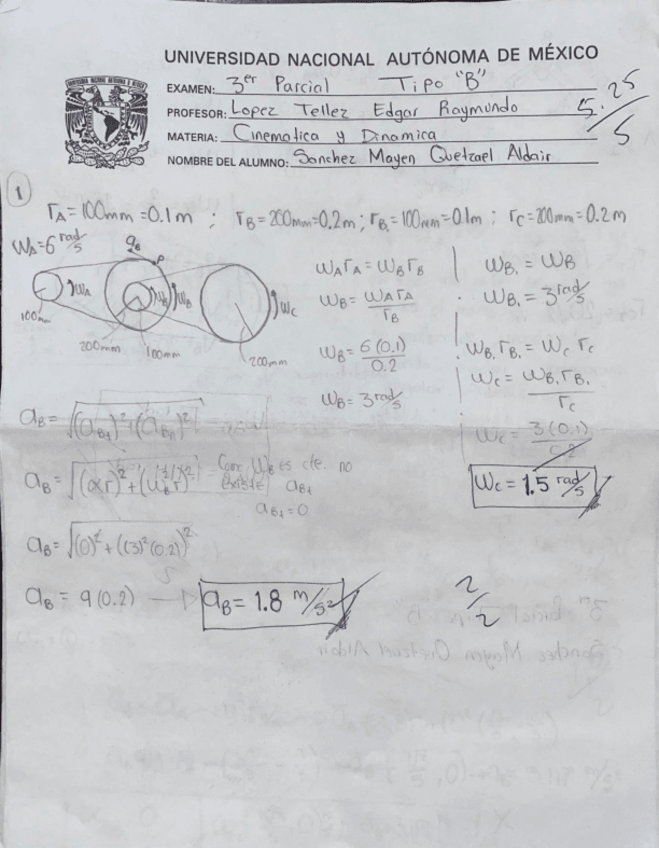 UNIVERSIDAD NACIONAL AUTÓNOMA DE MÉXICO
EXAMEN: 3er Parcial Tipo "B"
PROFESOR: Lopez Tellez Edgar Raymundo
MATERIA: Cinematica y Dinamica
NOMBRE DEL ALUMNO: Sanchez Mayen Quetzael Aldair
5.25/5
1
rA = 100mm = 0.1m ; rB = 200mm = 0.2m ; rB₁ = 100mm = 0.1m ; rC = 200mm = 0.2m
WA = 6 rad/s
aB
P
WA
WB
WC
100mm
200mm
100mm
200mm
WA rA = WB rB
WB = WA rA / rB
WB = 6(0.1) / 0.2
WB = 3 rad/s
WB₁ = WB
WB₁ = 3 rad/s
WB₁ rB₁ = WC rC
WC = WB₁ rB₁ / rC
WC = 3(0.1) / 0.2
WC = 1.5 rad/s
aB = √((aBt)² + (aBn)²)
aB = √((αr)² + (WB² r)²)
Como WB es cte. no
existe aBt
aBt = 0
aB = √((0)² + ((3)²(0.2))²)
aB = 9(0.2) → aB = 1.8 m/s²
2/2